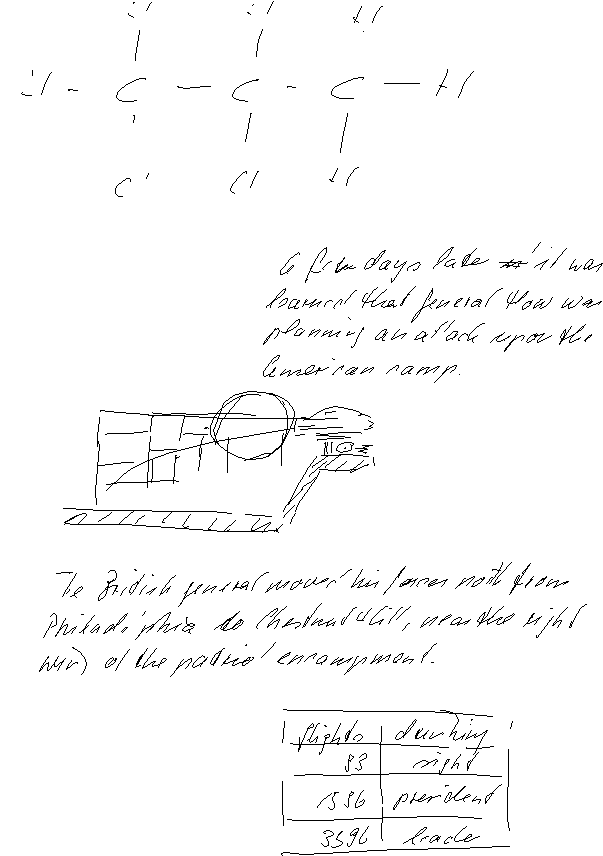 H H H
H - C - C - C - H
Cl Cl H
A few days late it was
learned that general How was
planning an attack upon the
American camp.
The British general moved his forces north from
Philadelphia to Chestnut Hill, near the right
wing of the patriot encampment.
flights
93 right
1596 president
3596 leade